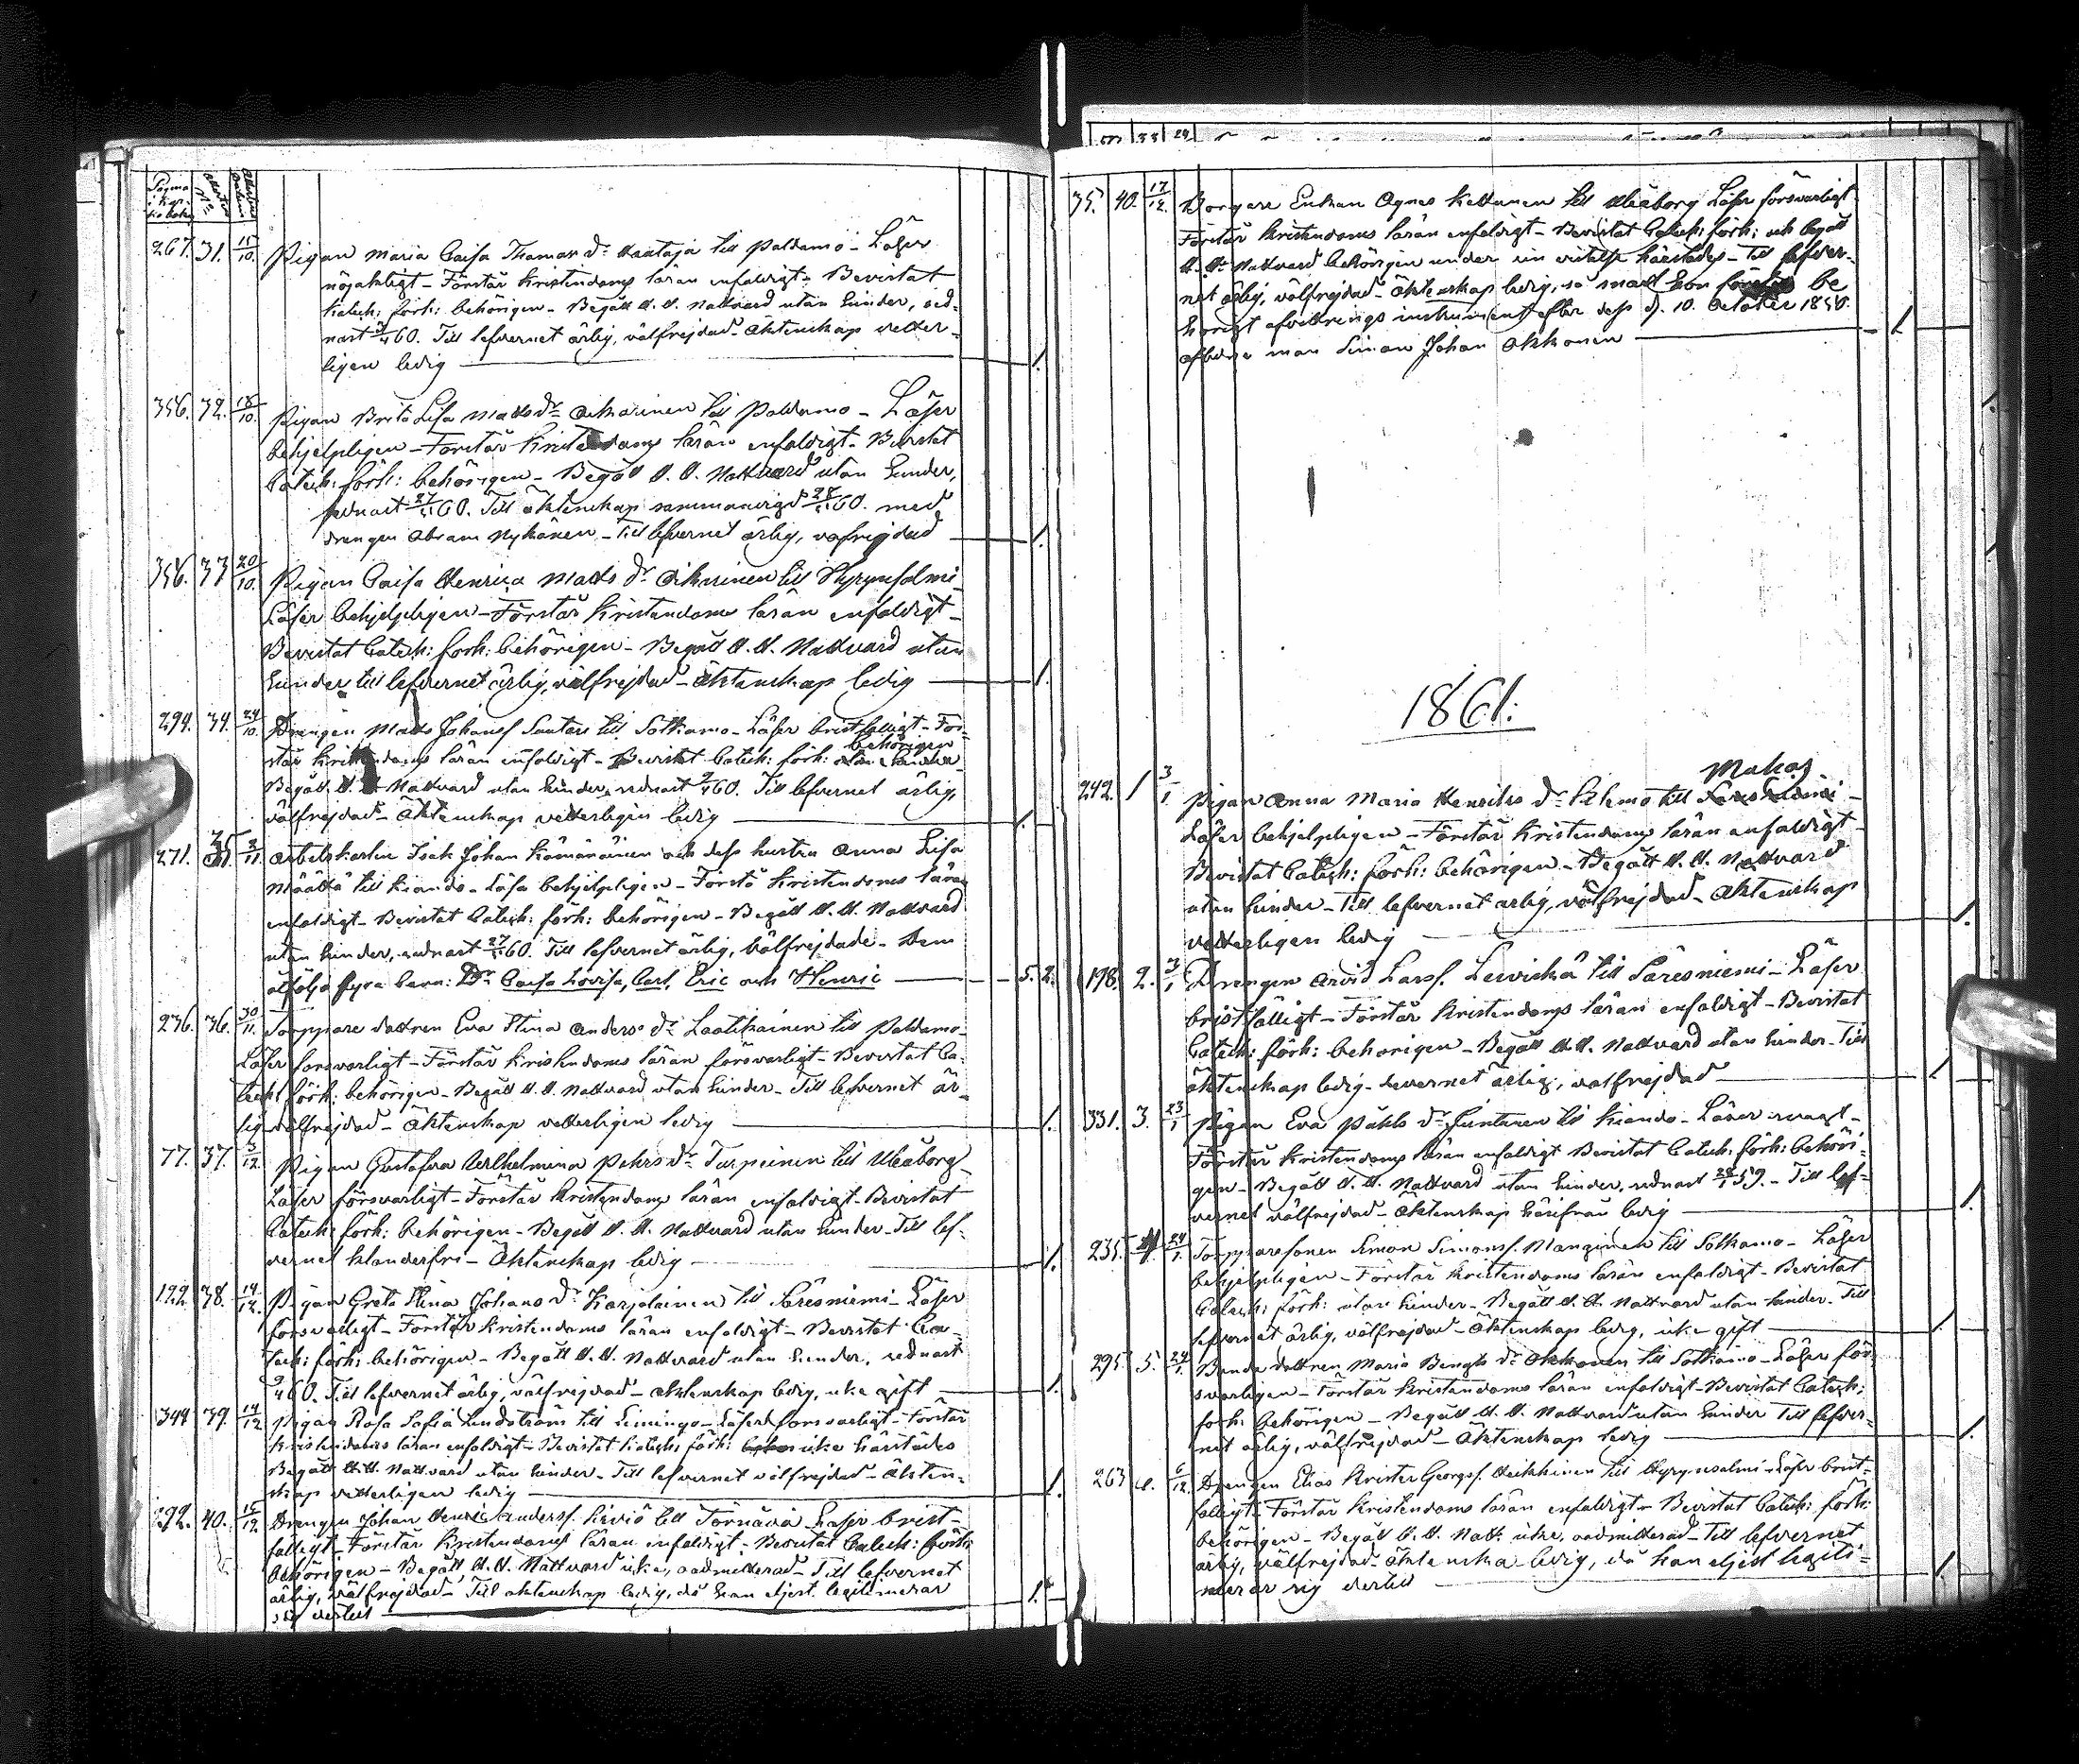 Pagina i Kom: bok
267. 31. 15/10. Pigan Maria Caisa Thomas dr Haataja till Paldamo - Läser
nöjaktigt - Förstår Kristendoms läran enfaldigt - Bevistat
Catech: förh: behörigen - Begått H. H. Nattvard utan hinder, sed-
nast 60. Till lefvernet ärlig, välfrejdad - Äktenskap vetter-
ligen ledig 1.
356. 32. 18/10. Pigan Brita Lisa Matts dr Oikarinen till Paldamo - Läser
behjelpligen - Förstår Kristendoms läran enfaldigt - Bevistat
Catech: förh: behörigen - Begått H. H. Nattvard utan hinder,
sednast 60. Till äktenskap sammanvigd 60. med
drengen Abram Nykänen - Till lefvernet ärlig, vafrejdad 1.
356. 33 20/10. Pigan Caisa Henrica Matts dr Oikarinen till Hyrynsalmi
Läser behjelpligen - Förstår Kristendoms läran enfaldigt -
Bevistat Catech: förh: behörigen - Begått H. H. Nattvard utan
hinder till lefvernet ärlig, välfrejdad - Äktenskap ledig 1.
294. 34. 24/10. Drengen Matts Johanss Santari till Sotkamo - Läser bristfälligt - För-
behörigen
står Kristendoms läran enfaldigt - Bevistat Catech: förh: utan hinder
Begått H. H. Nattvard utan hinder, sednast 60. Till lefvernet ärlig,
välfrejdad - Äktenskap vetterligen ledig 1.
271. 35 2/11. Arbetskarlen Isak Johan Kämäräinen och dess hustru Anna Lisa
Määttä till Kiando - Läsa behjelpligen - Förstå Kristendoms läran
enfaldigt - Bevistat Catech: förh: behörigen - Begått H. H. Nattvard
utan hinder, sednast 60. Till lefvernet ärlig, välfrejdade - Dem
åtfölja fyra barn: Caisa Lovisa, Carl, Eric och Henric 5. 2.
236. 36. 30/11. Torppare dottren Eva Stina Anders dr Laatikainen till Paldamo -
Läser försvarligt - Förstår Kristendoms läran försvarligt - Bevistat Ca-
tech: förh: behörigen - Begått H. H. Nattvard utan hinder - Till lefvernet är-
lig välfrejdad - Äktenskap vetterligen ledig 1.
77. 37. 3/12. Pigan Gustafva Wilhelmina Pehrs dr Turpeinen till Uleåborg -
Läser försvarligt - Förstår Kristendoms läran enfaldigt - Bevistat
Catech: förh: behörigen - Begått H. H. Nattvard utan hinder - Till lef-
vernet klanderfri - Äktenskap ledig 1.
122. 38. 14/12. Pigan Greta Stina Johans dr Karjalainen till Säresniemi - Läser
försvarligt - Förstår Kristendoms läran enfaldigt - Bevistat Ca-
tech: förh: behörigen - Begått H. H. Nattvard utan hinder, sednast
60. Till lefvernet ärlig, välfrejdad - Äktenskap ledig, icke gift 1.
344 39. 14/12 Pigan Rosa Sofia Lindström till Limingo - Läser försvarligt - Förstår
Kristendoms läran enfaldigt - Bevistat Catech: förh: icke härstädes
Begått H. H. Nattvard utan hinder - Till lefvernet välfrejdad - Äkten-
skap vetterligen ledig 1.
292. 40. 15/12. Drengen Johan Henric Anderss. Kirviö till Torniåvå Läser brist-
fälligt - Förstår Kristendoms läran enfaldigt - Bevistat Catech: förh:
behörigen - Begått H. H. Nattvard icke, oadmitterad - Till lefvernet
ärlig, välfrejdad - Till äktenskap ledig, då han eljest legitimerar
sig dertill 1.
35. 40. 17/12. Borgare Enkan Agnes Kettunen till Uleåborg Läser försvarligt
Förstår Kristendoms läran enfaldigt - Bevistat Catech: förh: och begått
H. H. Nattvard behörigen under sin vistelse härstädes - Till lefver-
net ärlig, välfrejdad - Äktenskap ledig, så snart hon be-
hörigt afvittrings instrument efter dess d. 10. October 1850.
aflidne man Simon Johan Okkonen 1
1861.
Makas
242. 1 3/1 Pigan Anna Maria Henriks dr till -
Läser behjelpligen - Förstår Kristendoms läran enfaldigt -
Bevistat Catech: förh: behörigen - Begått H. H. Nattvard
utan hinder - Till lefvernet ärlig, välfrejdad - Äktenskap
vetterligen ledig 1.
198. 2. 3/1 Drengen Arvid Larss. Leiviskä till Säresniemi - Läser
bristfälligt - Förstår Kristendoms läran enfaldigt - Bevistat
Catech: förh: behörigen - Begått H. H. Nattvard utan hinder - Till
äktenskap ledig - levernet ärlig, valfrejdad 1
331. 3. 23/1 Pigan Eva Påhls dr till Kiando - Läser svagt -
Förstår Kristendoms läran enfaldigt Bevistat Catech: förh: behöri-
gen - Begått H. H. Nattvard utan hinder, sednast 59. - Till lef-
vernet välfrejdad - Äktenskap härifrån ledig 1.
235. 4. 24/1. Torpparesonen Simon Simonss. Manginen till Sotkamo - Läser
behjelpligen - Förstår Kristendoms läran enfaldigt - Bevistat
Catech: förh: utan hinder - Begått H. H. Nattvard utan hinder - Till
lefvernet ärlig, välfrejdad - Äktenskap ledig, icke gift 1.
295 5. 24/1. Bonde dottren Maria Bengts dr Okkonen till Sotkamo - Läser för-
svarligen - Förstår Kristendoms läran enfaldigt - Bevistat Catech:
förh: behörigen - Begått H. H. Nattvard utan hinder Till lefver-
net ärlig, välfrejdad - Äktenskap ledig 1.
263 6. 6/12. Drengen Elias Krister Georgss. Heikkinen till Hyrynsalmi - Läser brist-
fälligt - Förstår Kristendoms läran enfaldigt - Bevistat Catech: förh:
behörigen - Begått H. H. Natt: icke, oadmitterad - Till lefvernet
ärlig, välfrejdad - äktenska ledig, då han eljest legiti-
merar sig dertill 1